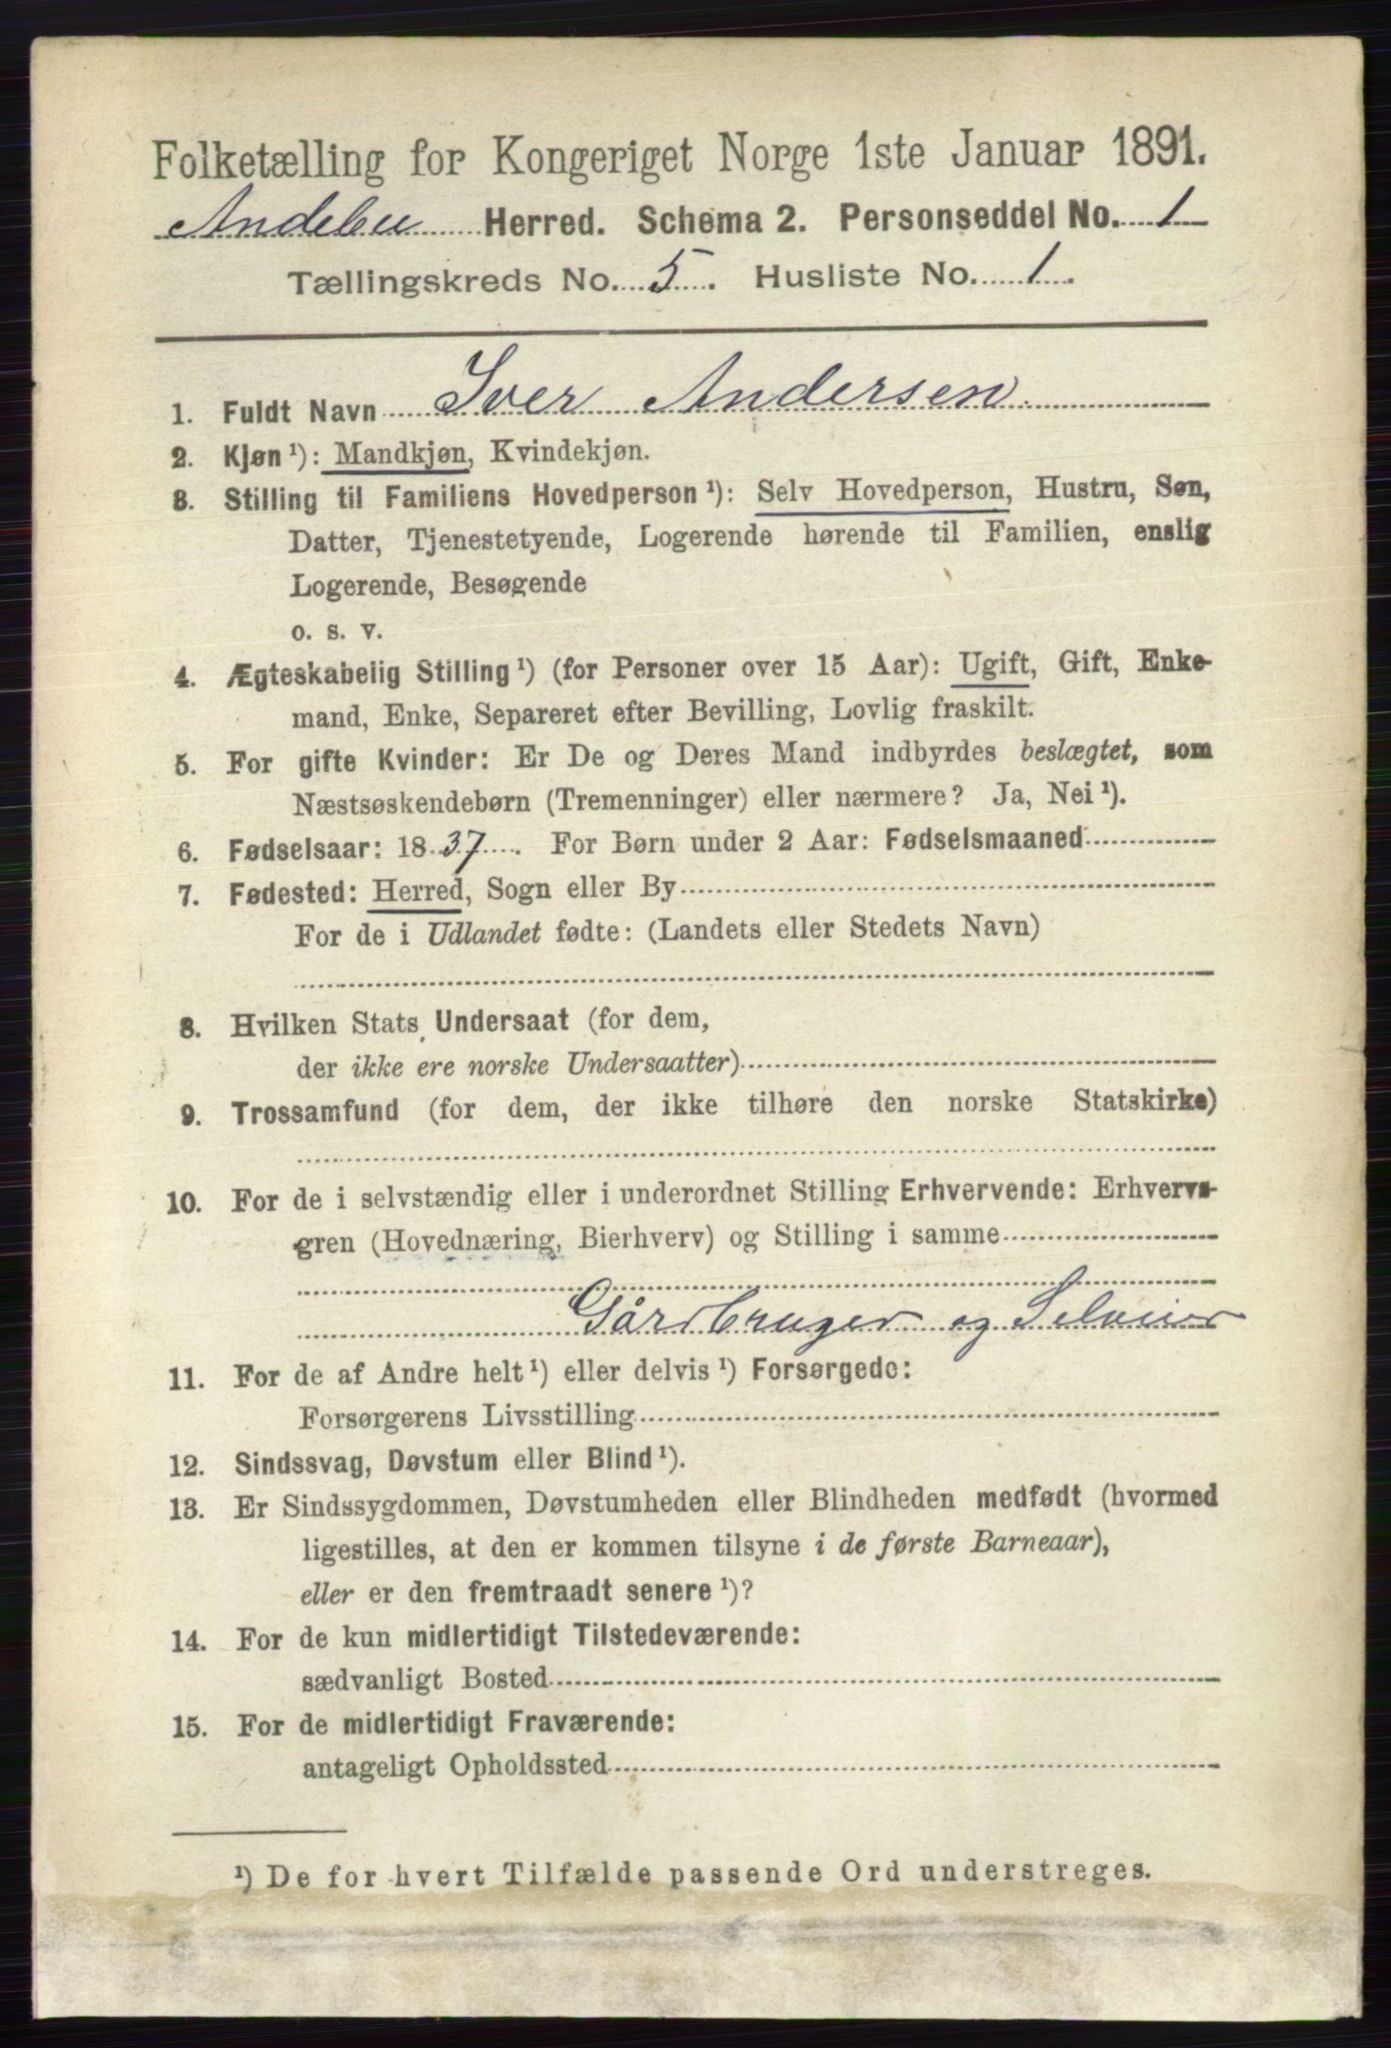 Folketælling for Kongeriget Norge 1ste Januar 1891.
Andebu Herred. Schema 2. Personseddel No. 1
Tællingskreds No. 5. Husliste No. 1.
1. Fuldt Navn Iver Andersen
2. Kjøn ¹): Mandkjøn, Kvindekjøn.
3. Stilling til Familiens Hovedperson ¹): Selv Hovedperson, Hustru, Søn,
Datter, Tjenestetyende, Logerende hørende til Familien, enslig
Logerende, Besøgende
o. s. v.
4. Ægteskabelig Stilling ¹) (for Personer over 15 Aar): Ugift, Gift, Enke-
mand, Enke, Separeret efter Bevilling, Lovlig fraskilt.
5. For gifte Kvinder: Er De og Deres Mand indbyrdes beslægtet, som
Næstsøskendebørn (Tremenninger) eller nærmere? Ja, Nei ¹).
6. Fødselsaar: 1837. For Børn under 2 Aar: Fødselsmaaned
7. Fødested: Herred, Sogn eller By
For de i Udlandet fødte: (Landets eller Stedets Navn)
8. Hvilken Stats Undersaat (for dem,
der ikke ere norske Undersaatter)
9. Trossamfund (for dem, der ikke tilhøre den norske Statskirke)
10. For de i selvstændig eller i underordnet Stilling Erhvervende: Erhvervs-
gren (Hovednæring, Bierhverv) og Stilling i samme
Gårdbruger og Selveier
11. For de af Andre helt ¹) eller delvis ¹) Forsørgede:
Forsørgerens Livsstilling
12. Sindssvag, Døvstum eller Blind ¹).
13. Er Sindssygdommen, Døvstumheden eller Blindheden medfødt (hvormed
ligestilles, at den er kommen tilsyne i de første Barneaar),
eller er den fremtraadt senere ¹)?
14. For de kun midlertidigt Tilstedeværende:
sædvanligt Bosted
15. For de midlertidigt Fraværende:
antageligt Opholdssted
¹) De for hvert Tilfælde passende Ord understreges.